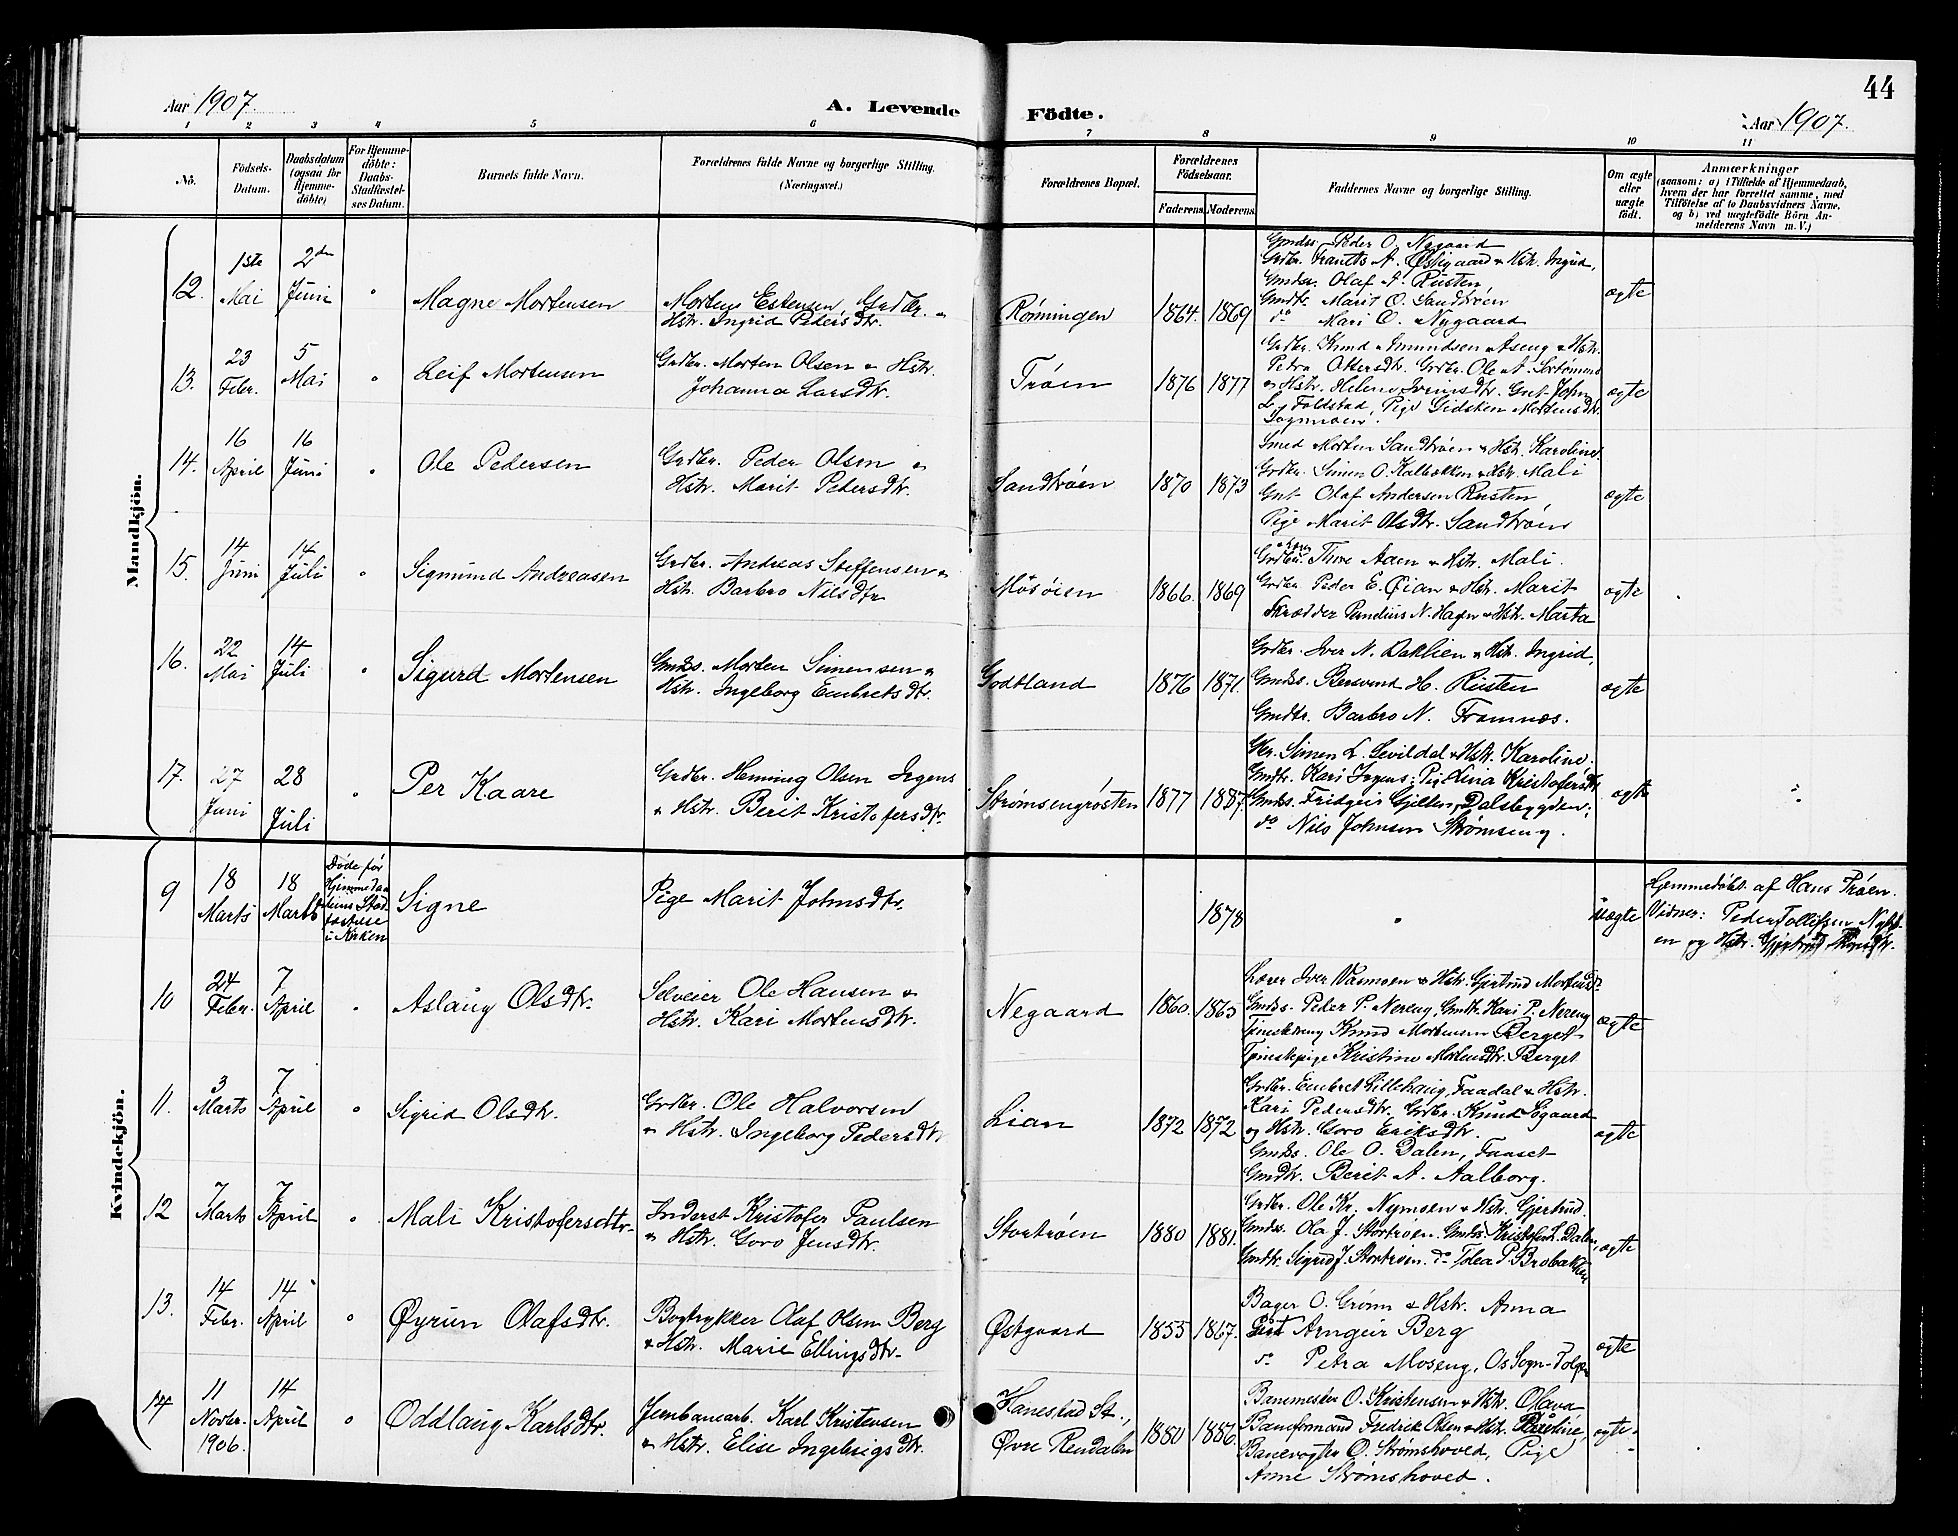 44
Aar 1907.
A. Levende
Födte.
Aar 1907.
1 2 3 4 5 6 7 8 9 10 11
No.
Födsels-
Datum.
Daabsdatum
(ogsaa for
Hjemme-
döbte)
For Hjemme-
döbte:
Daabs-
Stadfæstel-
ses Datum.
Barnets fulde Navn.
Forældrenes fulde Navne og borgerlige Stilling.
(Næringsvei.)
Forældrenes Bopæl.
Forældrenes
Födselsaar.
Faderens. Moderens.
Faddernes Navne og borgerlige Stilling.
Om ægte
eller
uægte
födt.
Anmærkninger
(saasom: a) i Tilfælde af Hjemmedaab,
hvem der har forrettet samme, med
Tilföielse af to Daabsvidners Navne.
og b) ved uægtefödte Börn An-
melderens Navn m. V.)
Mandkjön.
12.
1ste
Mai
2den
Juni
"
Magne Mortensen
Morten Estensen, Grdbr. &
Hstr. Ingrid Pedersdtr.
Rønningen
1864. 1869
Gmdss. Peder O. Nygaard
Grdbr. Frantts A. Østgaard & Hstr. Ingrid,
Gmdss. Olaf A. Rusten
Gmdtr. Marit O. Sandtrøen
do Mari O. Nygaard
ægte
13.
23
Febr.
5
Mai
"
Leif Mortensen
Grdbr. Morten Olsen & Hstr.
Johanna Larsdtr.
Trøen
1876 1877
Grdbr. Knud Amundsen Aseng & Hstr.
Petra Ottersdtr. Grdbr. Ole A.
& Hstr. Helene Iversdtr. Gmt. John
L. Foldstad, Pige Gidsken Mortensdtr.
ægte
14.
16
April
16
Juni
"
Ole Pedersen
Grdbr. Peder Olsen &
Hstr. Marit Pedersdtr.
Sandtrøen
1870 1873
Smed Morten Sandtrøen & Hstr. Karoline.
Grdbr. Simen O. Kalbækken & Hstr. Mali
Gmt. Olaf Andersen Rusten
Pige Marit Olsdtr. Sandtrøen
ægte
15.
14
Juni
14
Juli
"
Sigmund Andreasen
Grdbr. Andreas Steffensen &
Hstr. Barbro Nilsdtr.
Mosøien
1866. 1869
Grdbr. Thore Aaen & Hstr. Mali.
Grdbr. Peder E. Øian & Hstr. Marit
Skrædder N. Hagen & Hstr. Marta
ægte
16.
22
Mai
14
Juli
"
Sigurd Mortensen
Gmdss. Morten Simensen &
Hstr. Ingeborg Embretsdtr.
Godtland
1876 1871.
Grdbr. Iver N. Baklien & Hstr. Ingrid,
Gmdss. Bersvend H. Rusten
Gmdtr. Barbro N. Framnæs.
ægte
17.
27
Juni
28
Juli
"
Per Kaare
Grdbr. Henning Olsen Jegens
& Hstr. Berit Kristofersdtr.
Strømsengrøsten
1877 1887.
Gbr. Simen L. Sevildal & Hstr. Karoline.
Gmdtr. Kari Jogens; Pige Lina Kristofersdtr.
Gmdss. Fridgeir Gjelten, Dalsbygden;
do Nils Johnsen Strømseng.
ægte
Kvindekjön.
9
18
Marts
18
Marts
Døde før
Hjemmedaa-
bens Stad-
fæstelse
i Kirken
Signe
Pige Marit Johnsdtr.
1878
"
uægte
Hjemmedøbt af Hans Trøen.
Vidner: Peder Tollefsen
en og Hstr. Gjertrud
10
24
Febr.
7
April
"
Aslaug Olsdtr.
Selveier Ole Hansen &
Hstr. Kari Mortensdtr.
Negaard
1860. 1865
Lærer Iver Vasmoen & Hstr. Gjertrud Mortensd.
Gmdss. Peder P. Nereng, Gmdtr. Kari P. Nereng
Tjenestdreng Knud Mortensen Berget
Tjenestepige Kristine Mortensdtr. Berget
ægte
11.
3
Marts
7
April
"
Sigrid Olsdtr.
Grdbr. Ole Halvorsen
& Hstr. Ingeborg Pedersdtr.
Lian
1872 1872
Grdbr. Embret Lillehaug, Faadal & Hstr.
Kari Pedersdtr, Grdbr. Knud Øgaard
og Hstr. Goro Eriksdtr.
Gmdss. Ole O. Dalen, Faaset
Gmdtr. Berit A. Aalborg.
ægte
12
7
Marts
7
April
"
Mali Kristofersdtr.
Inderst Kristofer Paulsen
& Hstr. Goro Jensdtr.
Stortrøen
1880 1881.
Grdbr. Ole Kr. Nymoen & Hstr. Gjertrud.
Gmdss. Ola J. Stortrøen. Gmdss. Kristofer L. Dalen,
Gmdtr. Sigrid J. Stortrøen. do Tolea P. Brobakken
ægte
13.
14
Febr.
14
April
"
Øyrun Olafsdtr.
Bogtrykker Olaf Olsen Berg
& Hstr. Marie Ellingsdtr.
Østgaard
1855 1867.
Bager O. Grønn & Hstr. Anna
Arngeir Berg
do Petra Moseng, Os Sogn-Tolgen
ægte
14
11
Novbr.
1906.
14
April
"
Oddlaug Karlsdtr.
Jernbanearb. Karl Kristensen
& Hstr. Elise Ingebrigtsdtr.
Hanestad St.,
Øvre Rendalen
1880 1886.
Banemester O. Kristensen & Hstr. Olava
Baneformand Fredrik Olsen & Hstr. Pauline,
Banevogter O. Strømshoved, Pige
Anne Strømshoved.
ægte.